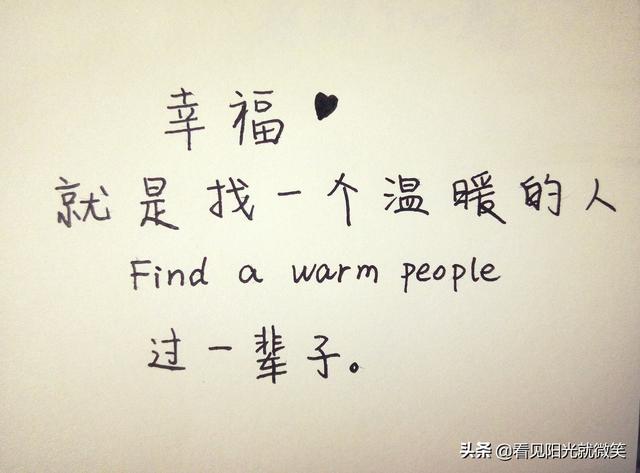 幸福♥
就是找一个温暖的人
Find a warm people
过一辈子。
头条 @看见阳光就微笑